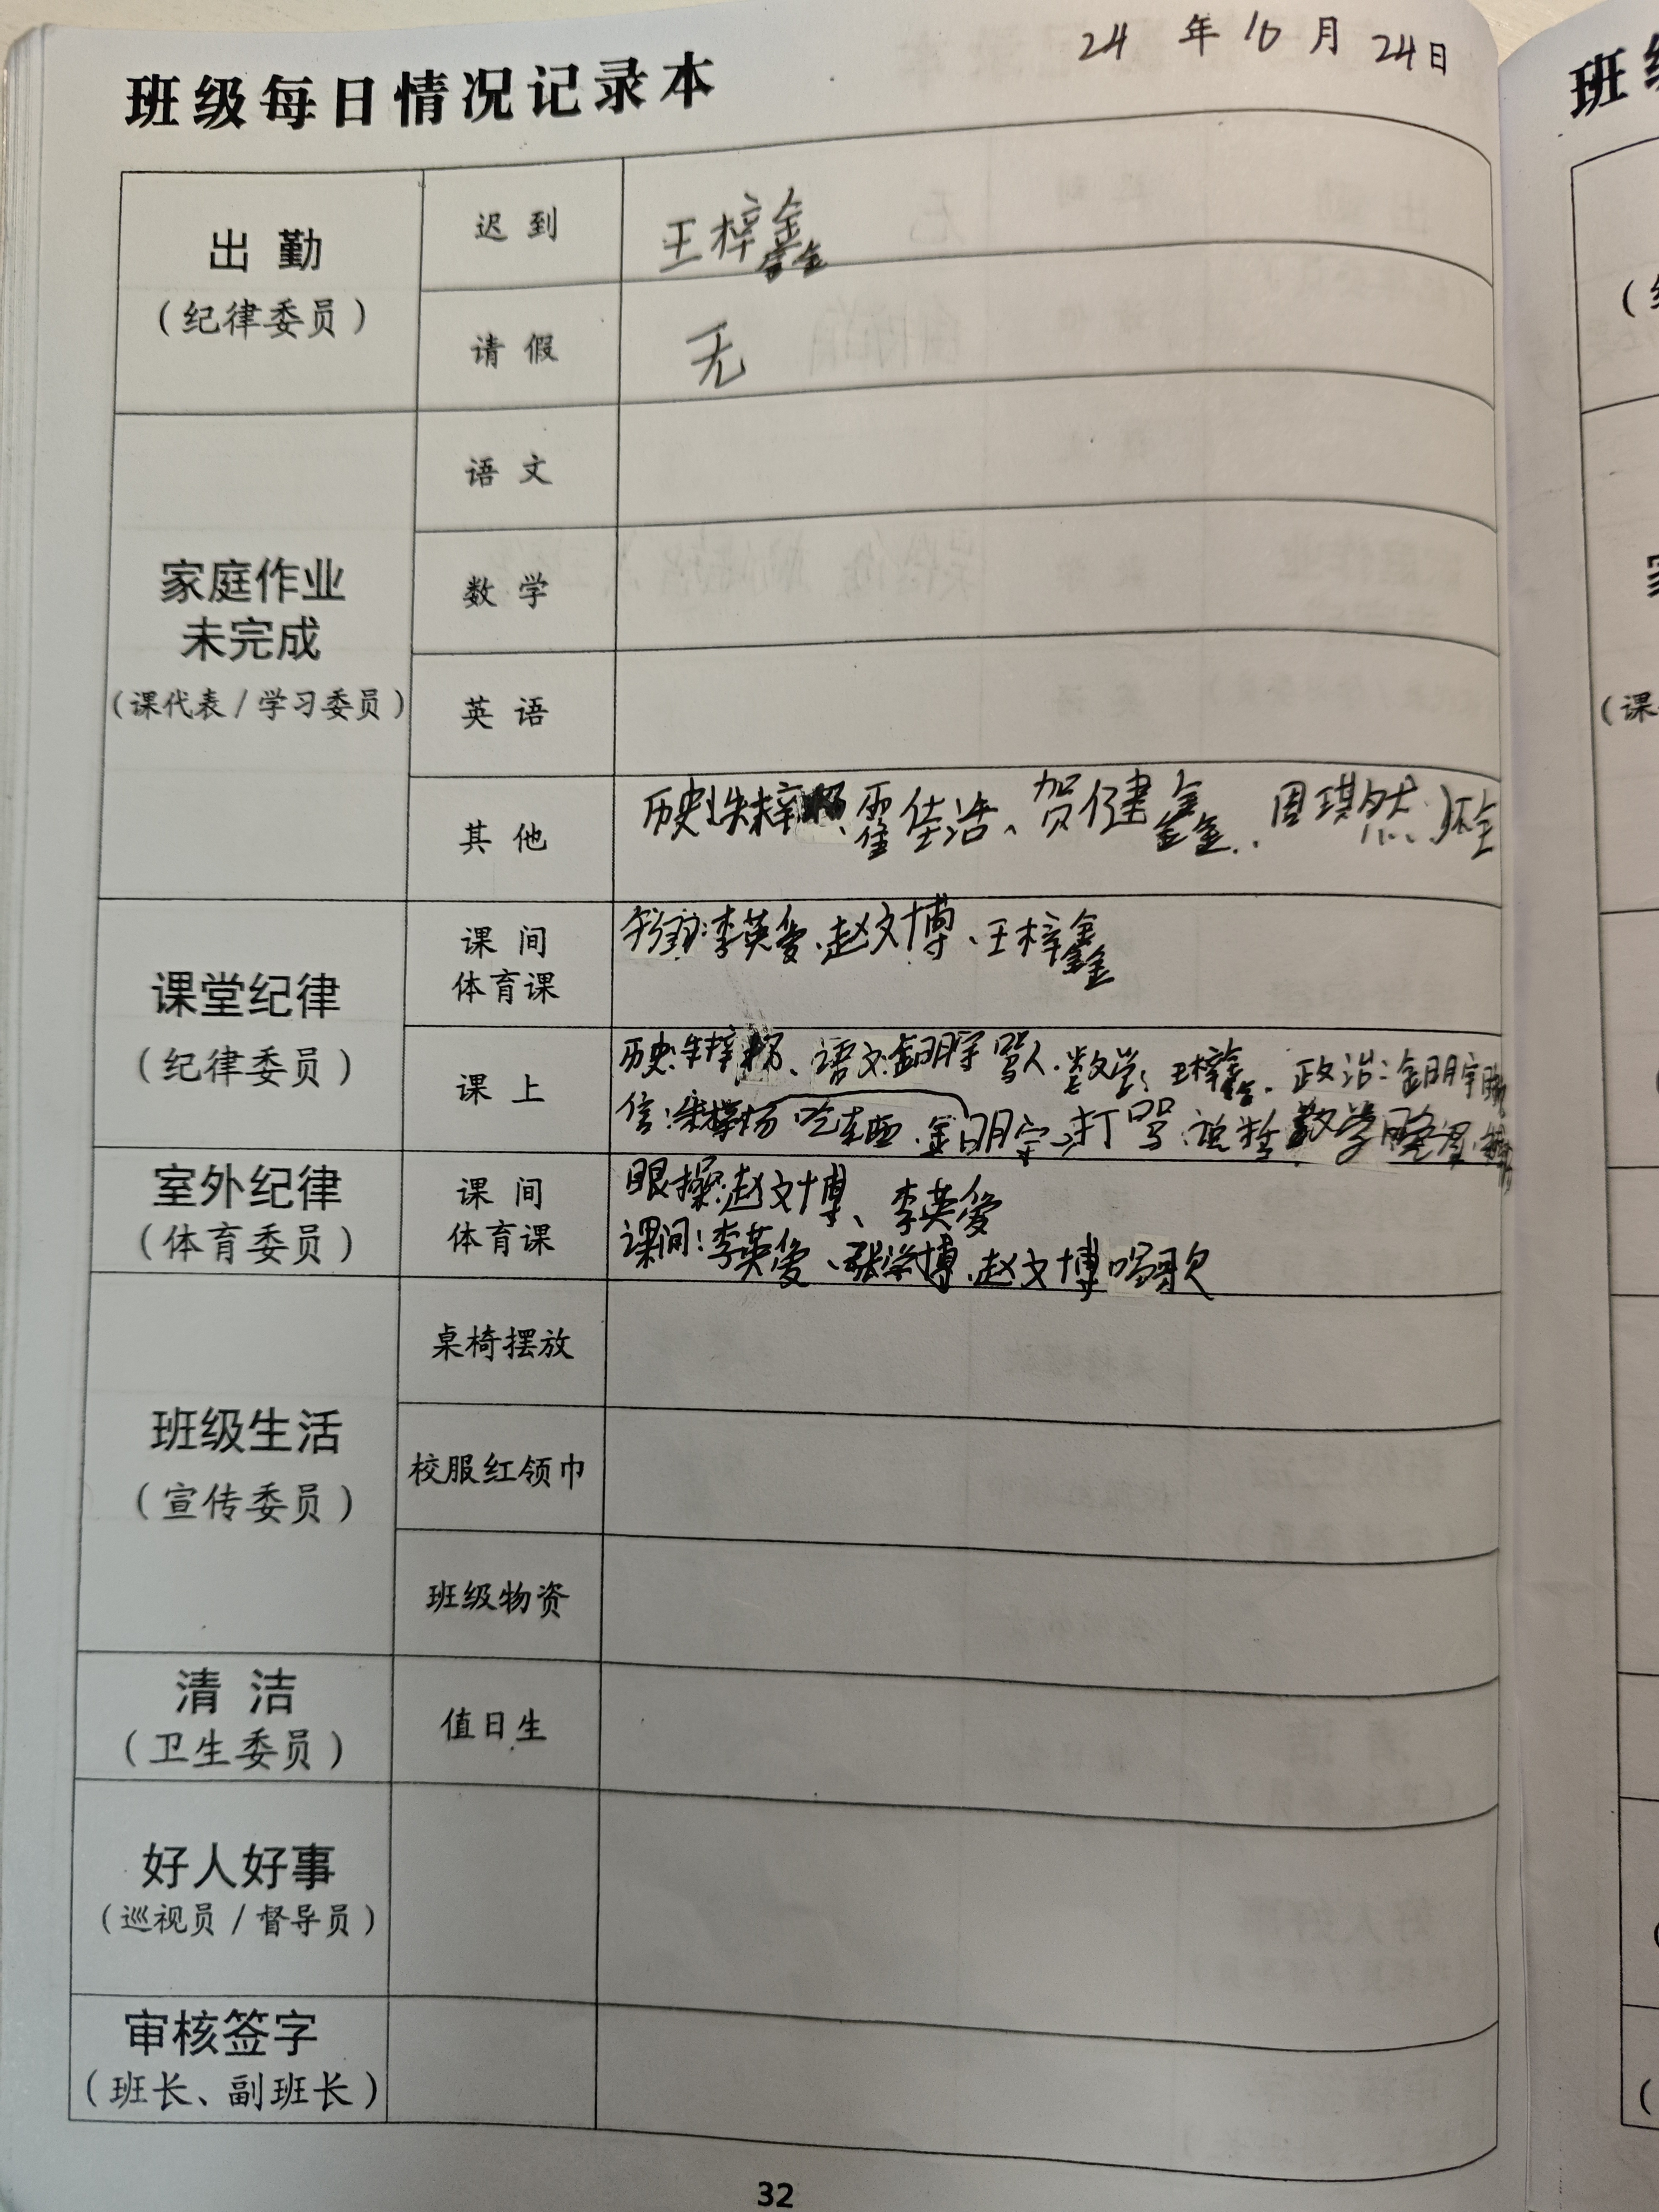 24 年 10 月 24日
班级每日情况记录本
出 勤
（纪律委员）
迟 到
王梓鑫
请 假
无
家庭作业
未完成
（课代表 / 学习委员）
语 文
数 学
英 语
其 他
历史:朱梓 、霍佳浩、贺健鑫、周琪然、
课堂纪律
（纪律委员）
课 间
体育课
李英爱、赵文博、王梓鑫
课 上
历史:朱梓杨、语文:金明宇骂人、数学:王梓鑫、政治:金明宇
信:朱梓杨吃东西、金明宇打骂 数学
室外纪律
（体育委员）
课 间
体育课
眼操:赵文博、李英爱
课间:李英爱、张学博、赵文博唱歌
班级生活
（宣传委员）
桌椅摆放
校服红领巾
班级物资
清 洁
（卫生委员）
值日生
好人好事
（巡视员 / 督导员）
审核签字
（班长、副班长）
32
班